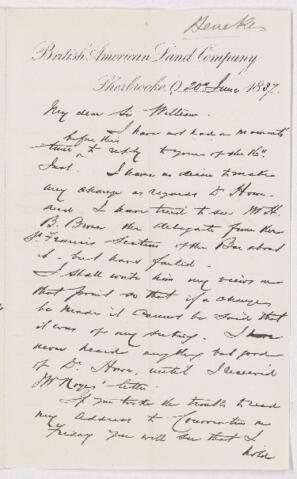 Heneker
British American Land Company
Sherbrooke, Q. 20th June 1887.
My dear Sir William.
I have not had a moments
before this
time to reply to yours of the
Inst. I have no desire to make
any change as regards Dr Howe
and I have tried to see Mr H.
B. Brown the delegate from the
St Francis Section of the Bar about
it but have failed.
I shall write him my views on
that point so that if a change
be made it cannot be said that
it was of my seeking. I have
never heard anything but good
of Dr. Howe, until I received
Mr Noyes' letter.
If you take the trouble to read
my Address to Convocation on
Friday you will see that I
hold